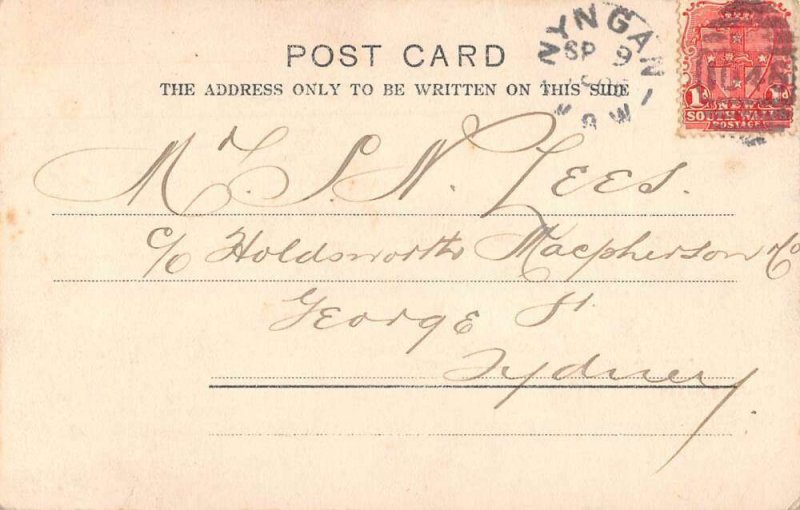 POST CARD
THE ADDRESS ONLY TO BE WRITTEN ON THIS SIDE
NYNGAN
SP 9
N.S.W
1d 1d
NEW
SOUTH WALES
POSTAGE
Mr. S. N. Lees.
c/o Holdsworth Macpherson & Co
George St.
Sydney.